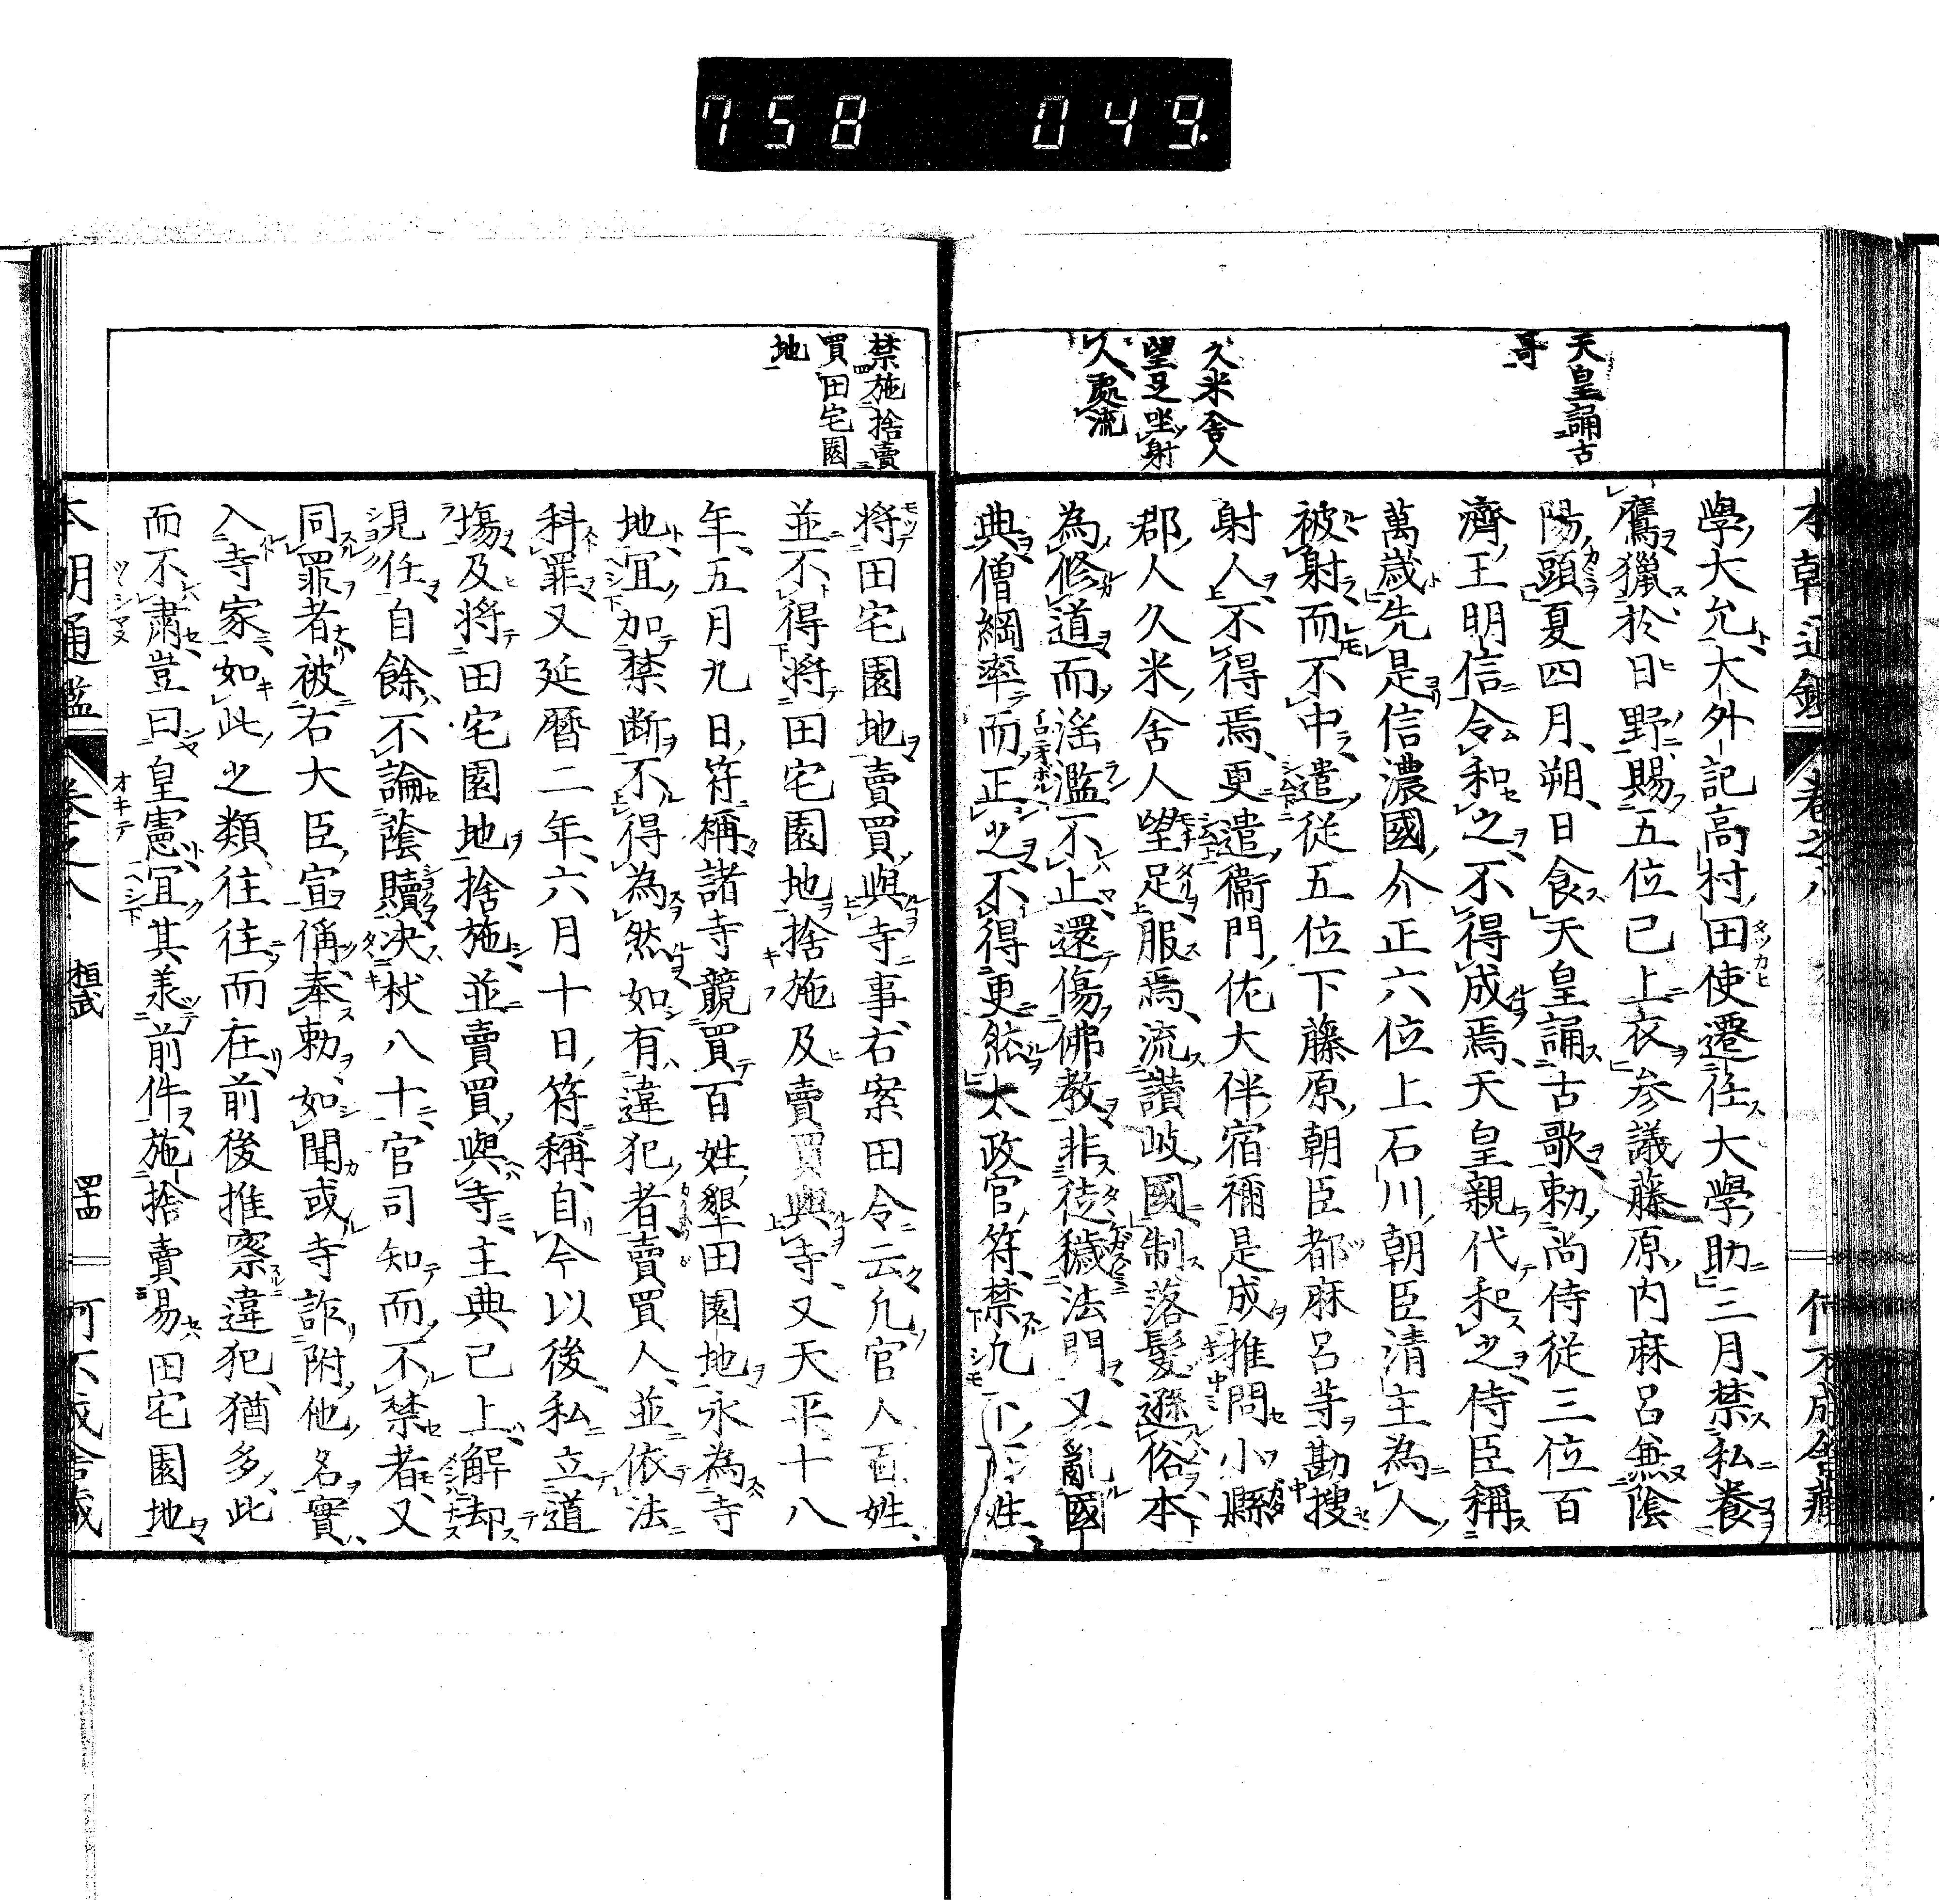 758 049.
本朝通鑑 卷之八
天皇誦古
哥
久米舍人
望足坐射
人處流
學大允大外記高村田使遷任大學助三月禁私養
鷹獵於日野賜五位已上衣参議藤原内麻呂兼陰
陽頭夏四月朔日食天皇誦古歌勅尚侍從三位百
濟王明信令和之不得成焉天皇親代和之侍臣稱
萬歳先是信濃國介正六位上石川朝臣清主為人
被射而不中遣從五位下藤原朝臣都麻呂等勘搜
射人不得焉更遣衞門佐大伴宿禰是成推問小縣
郡人久米舍人望足服焉流讃岐國制落髮遜俗本
為修道而滛濫不止還傷佛教非徒穢法門又亂國
典僧綱率而正之不得更然太政官符禁九下百姓
禁施捨賣
買田宅園
地
將田宅園地賣買與寺事右案田令云凡官人百姓
並不得將田宅園地捨施及賣買與寺又天平十八
年五月九日符稱諸寺競買百姓墾田園地永為寺
地宜加禁断不得為然如有違犯者賣買人並依法
科罪又延暦二年六月十日符稱自今以後私立道
塲及將田宅園地捨施並賣買與寺主典已上解却
見任自餘不論蔭贖决杖八十官司知而不禁者又
同罪者被右大臣宣偁奉勅如聞或寺詐附他名實
入寺家如此之類往往而在前後推察違犯猶多此
而不肅豈曰皇憲宜其素前件施捨賣易田宅園地
本朝通鑑 卷之八 桓武 四